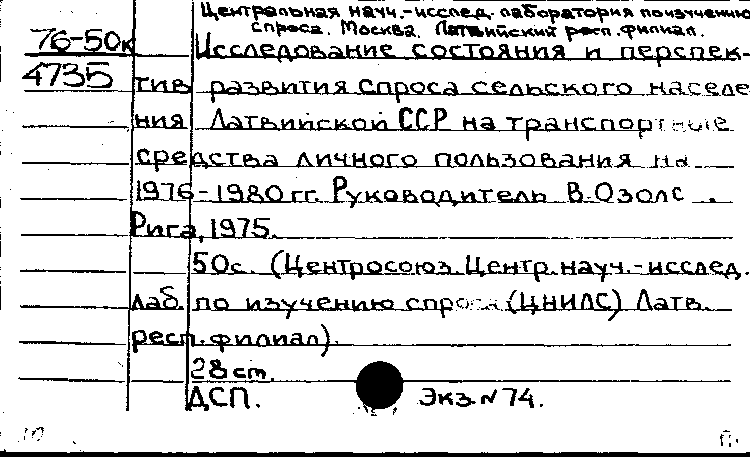 Центральная науч.-исслед. лаборатория по изучению
спроса. Москва. Латвийский респ. филиал.
76-50к
Исследование состояния и перспек-
4735
тив развития спроса сельского населе
ния Латвийской ССР на транспортные
средства личного пользования на
1976-1980 гг. Руководитель В. Озолс.
Рига, 1975.
50с. (Центросоюз. Центр. науч.-исслед.
лаб. по изучению спроса (ЦНИЛС) Латв.
респ. филиал).
28 см.
ДСП. Экз. N 74.